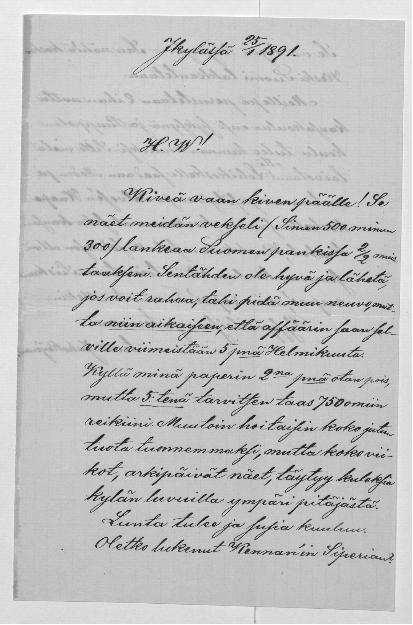 Jkylässä 25/1 1891.
H. W.!
Kiveä vaan kiven päälle! Se
näet meidän vekseli (Sinun 500 minun
300) lankeaa Suomen pankissa 2/2 mis
taakseni. Sentähden ole hyvä ja lähetä,
jos voit rahaa, tahi pidä muu neuvo, mut-
ta niin aikaiseen, että affäärin saan sel-
ville viimeistään 5 pnä Helmikuuta.
Kyllä minä paperin 2na pnä otan pois,
mutta 5. tenä tarvitsen taas 7500 miin
reikiini. Muutoin hoitaisin koko jutun
tuota tuonnemmaksi, mutta koko vii-
kot, arkipäivät näet, täytyy kuleksia
kylän luvuilla ympäri pitäjästä.
Lunta tulee ja susia kuuluu.
Oletko lukenut Kennan'in Siperian?